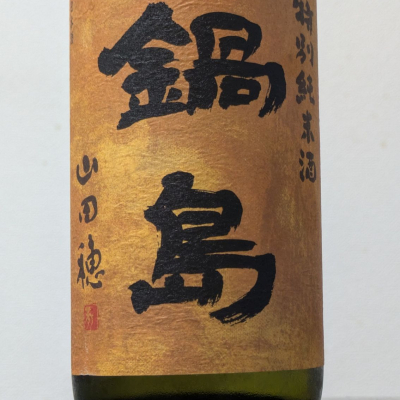 特別純米酒
鍋島
山田穂